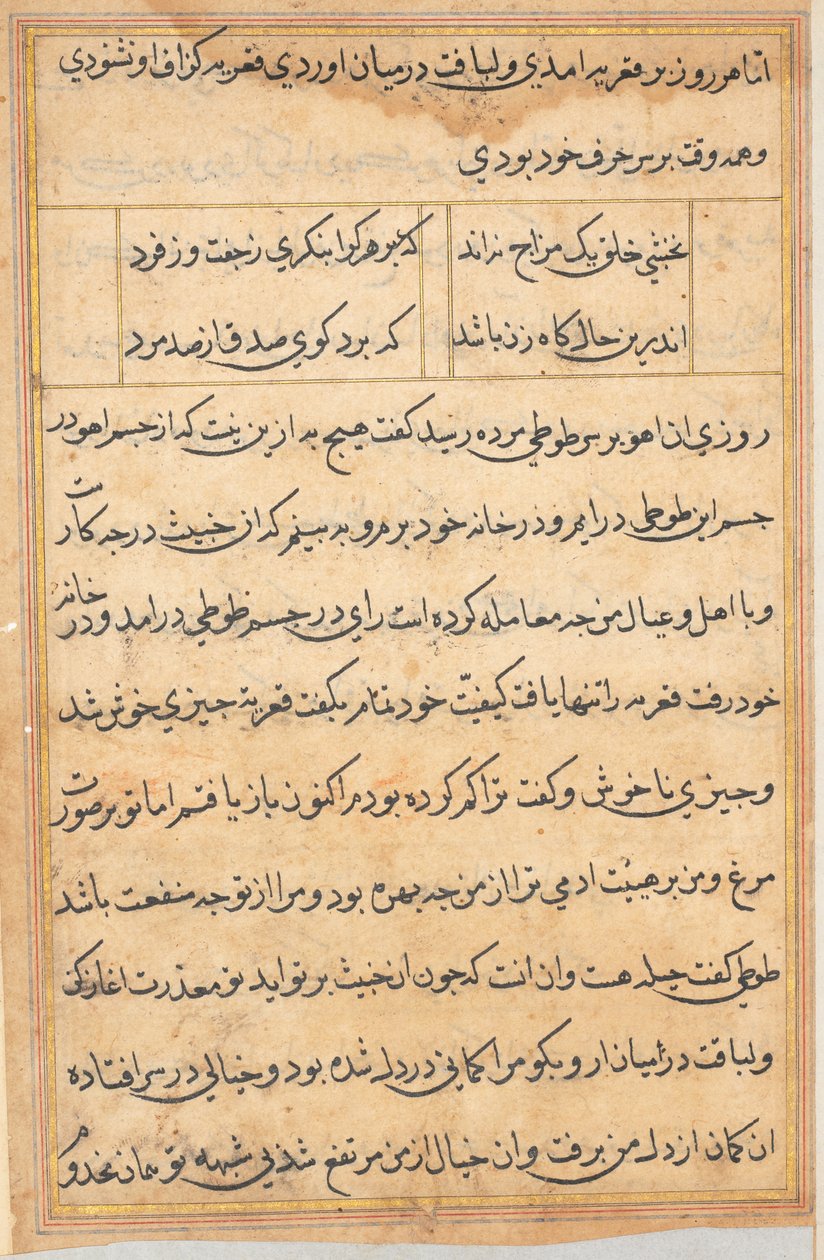 اما هر روز بر قمریه امدی و لباقت در میان اوردی قمریه کزاف او نشنودی
و همه وقت بر سر حرف خود بودی
نخشبی خلق یک مزاج نداند که بر هر کرا بنکری ز جفت و ز فرد
اندرین حال کاه زن باشد که برد کوی صدق از صد مرد
روزی ان اهو بر سر طوطی مرده رسید کفت هیچ به ازین نیت که از جسم اهو در
جسم این طوطی در ایم و در خانه خود بروم و به بینم که ان خبیث در جه کارت
و با اهل و عیال من جه معامله کرده است رای در جسم طوطی در امد و در خانه
خود رفت قمریه را تنها یافت کیفیّت خود تمام بکفت قمریه جیزی خوش شد
و جیزی نا خوش و کفت ترا کم کرده بودم اکنون باز یافتم اما تو بر صورت
مرغ و من بر هیئت ادمی ترا از من جه بهره بود و مرا از تو جه منفعت باشد
طوطی کفت حیله هست و ان انت که جون ان خبیث بر تو اید تو معذرت اغاز کن
و لباقت در میان ار و بکو مرا کمانی در دل شده بود و خیالی در سر افتاده
ان کمان از دل من برفت و ان خیال از من مرتفع شد بی شبهه تو همان مخدوم